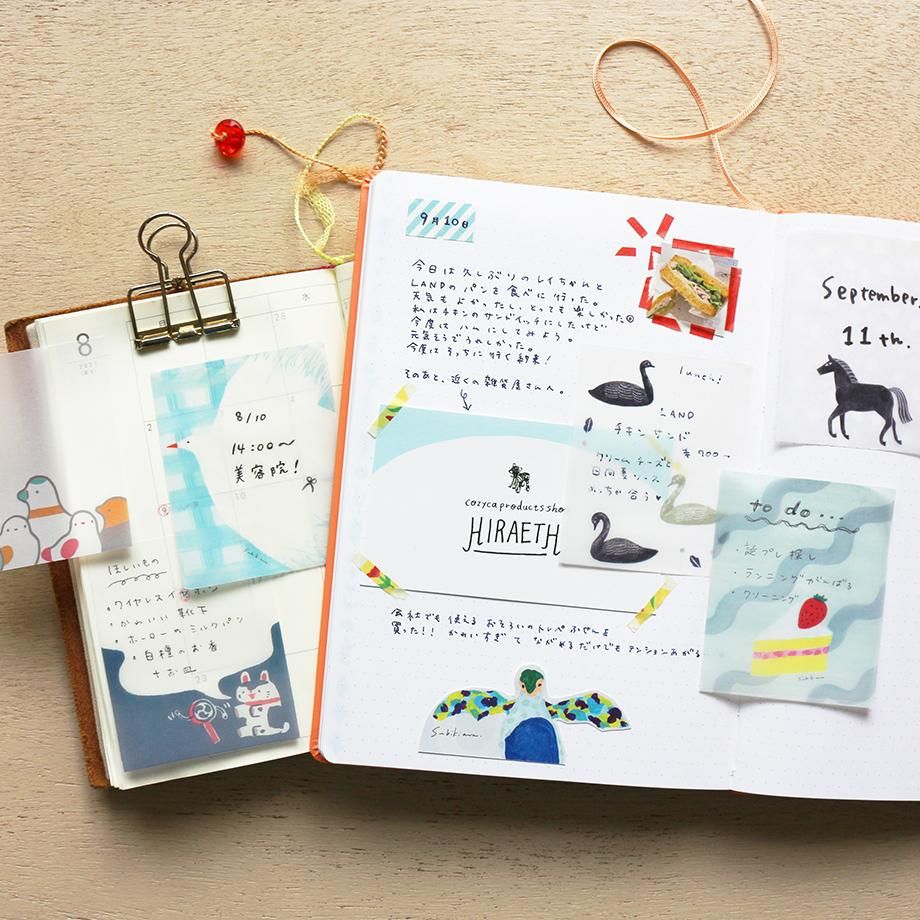 8
28
水
2
9
10
23
8/10
14:00〜
美容院!
ほしいもの
・ワイヤレスイヤホン
・かわいい靴下
・ホーローのミルクパン
・白檀のお香
お皿
9月10日
今日は久しぶりのレイちゃんと
LANDのパンを食べに行った。
天気もよかったし、とっても楽しかった
私はチキンのサンドイッチにしたけど
今度はハムにしてみよう。
元気そうでうれしかった。
今度はそっちに行く約束!
そのあと、近くの雑貨屋さんへ。
cozyca products sho
HIRAETH
lunch!
LAND
チキンサンド
¥700-
クリームチーズと
日向夏ソース
めっちゃ合う♥
会社でも使えるおそろいのトレペふせんを
買った!! かわいすぎて ながめるだけでもテンションあがる..
Subikiawa.
September,
11th.
to do...
・誕プレ探し
・ランニングがんばる
・クリーニング